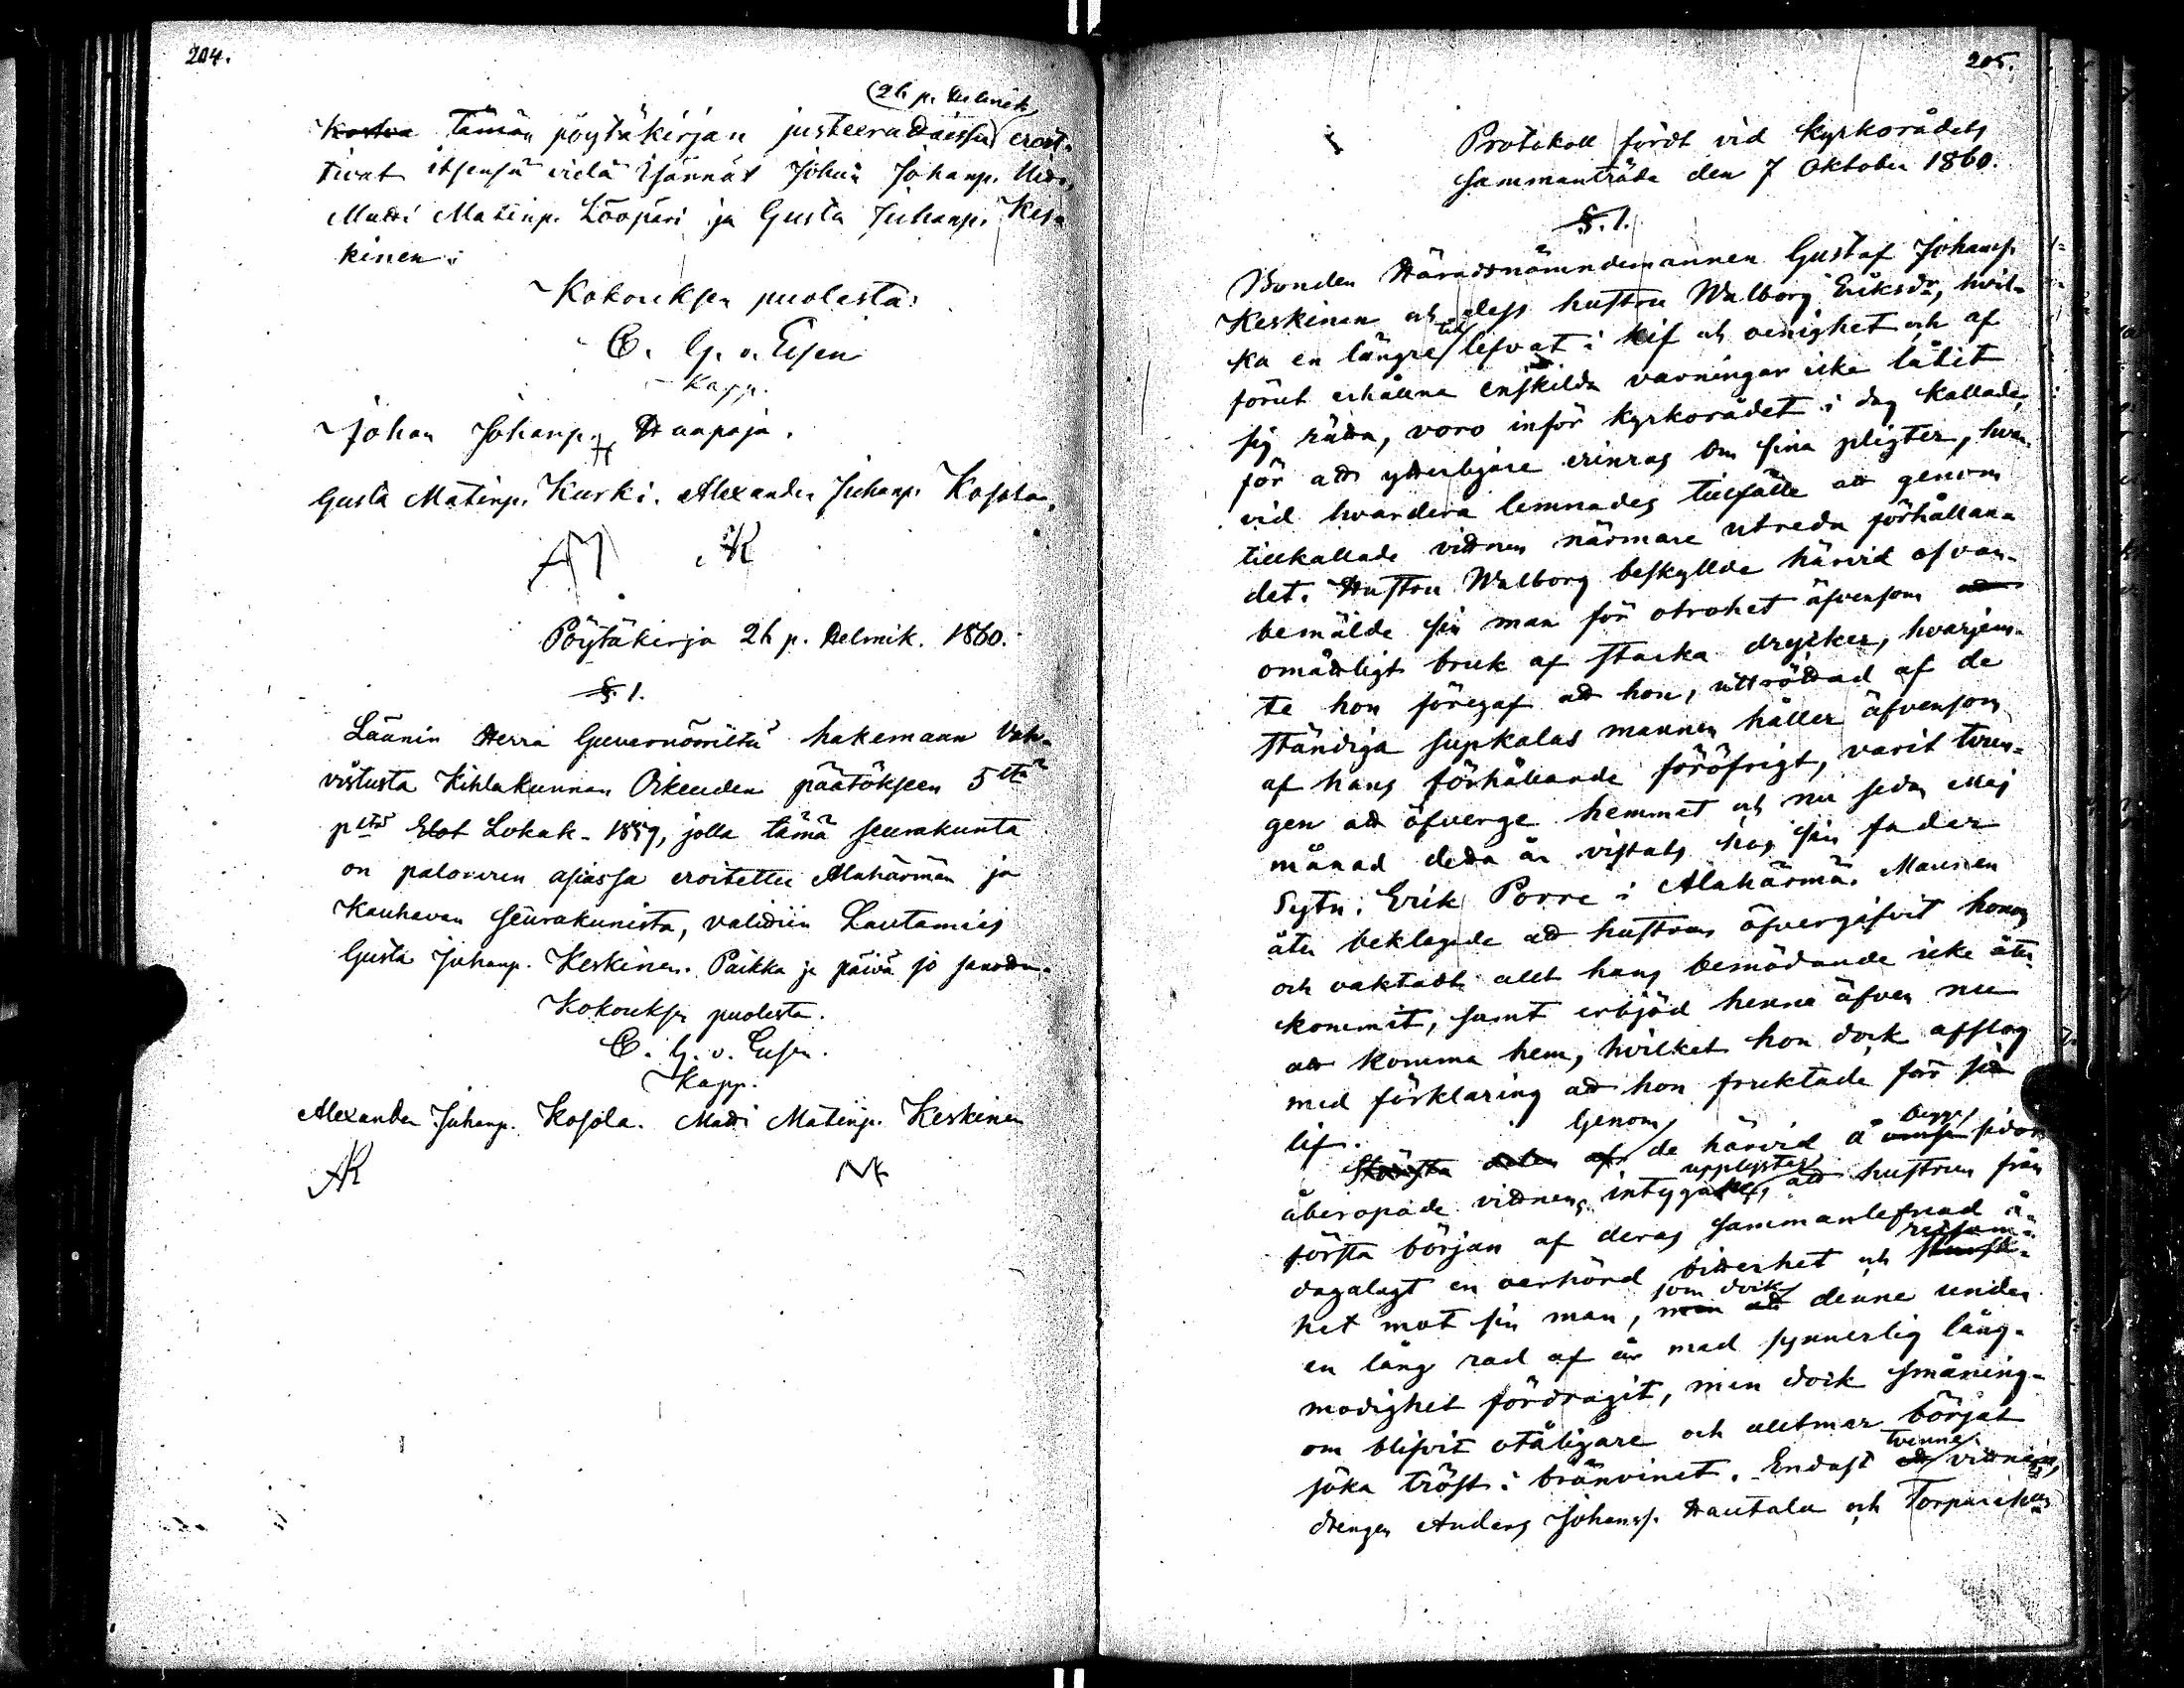 204.
(26 p. Helmik.
Kostva tämän pöytäkirjan justeeradaissa eroit-
tivat itsensä vielä Isännät Johan Johanp.
Matti Matinp. Lööpäri ja Gusta Juhanp. Kes-
kinen.
Kokouksen puolesta:
C. G. v. Essen
Kapp.
Johan Johanp. Haapoja.
Gusta Matinp. Kurki. Alexander Juhanp. Kosola.
AK
Pöytäkirja 26 p. Helmik. 1860.
§. 1.
Läänin Herra Guvernööriltä hakemaan vah-
vistusta Kihlakunnan Oikeuden päätökseen 5stä
pstä Elok Lokak. 1859, jolla tämä seurakunta
on palovaron asiassa eroitettu Alahärmän ja
Kauhavan seurakunista, valittiin Lautamies
Gusta Juhanp. Keskinen. Paikka ja päivä jo sanottu.
Kokouksen puolesta.
C. G. v. Essen.
Kapp.
Alexander Juhanp. Kosola. Matti Matinp. Keskinen
AK
205.
Protokoll fördt vid Kyrkorådets
sammanträde den 7 Oktober 1860.
§. 1.
Bonden Häradsnämndemannen Gustaf Johansf.
Keskinen och dess hustru Walborg Eriksdr, hvil-
ka en längre tid lefvat i kif och oenighet och af
förut erhållna enskilda varningar icke låtit
sig rätta, voro inför kyrkorådet i dag kallade,
för att ytterligare erinras om sina pligter, hvar-
vid hvardera lemnades tillfälle att genom
tillkallade vittnen närmare utreda förhållan-
det. Hustru Walborg beskyllde härvid ofvan-
bemälde sin man för otrohet äfvensom att
omåttligt bruk af starka drycker, hvarjem-
te hon föregaf att hon, uttröttad af de
ständiga supkalas mannen håller äfvensom
af hans förhållande föröfrigt, varit tvun-
gen att öfverge hemmet och nu sedan Maj
månad detta år vistats hos sin fader
Sytn. Erik Porre i Alahärmä. Mannen
åter beklagade att hustrun öfvergifvit honom
och oaktadt allt hans bemödande icke åter-
kommit, samt erbjöd henne äfven nu
att komma hem, hvilket hon dock afslog
med förklaring att hon fruktade för sitt
lif.
Genom begge
Största delen af de härvid å ömse sidor
upplystes
åberopade vittnens intygade, att hustrun från
första början af deras sammanlefnad å-
dagalagt en oerhörd bitterhet och
som dock
het mot sin man, men att denne under
en lång rad af år med synnerlig lång-
modighet fördragit, men dock småning-
om blifvit otåligare och alltmer börjat
tvenne
söka tröst i bränvinet. Endast vittnen,
drengen Anders Johansf. Hautala och Torparehus